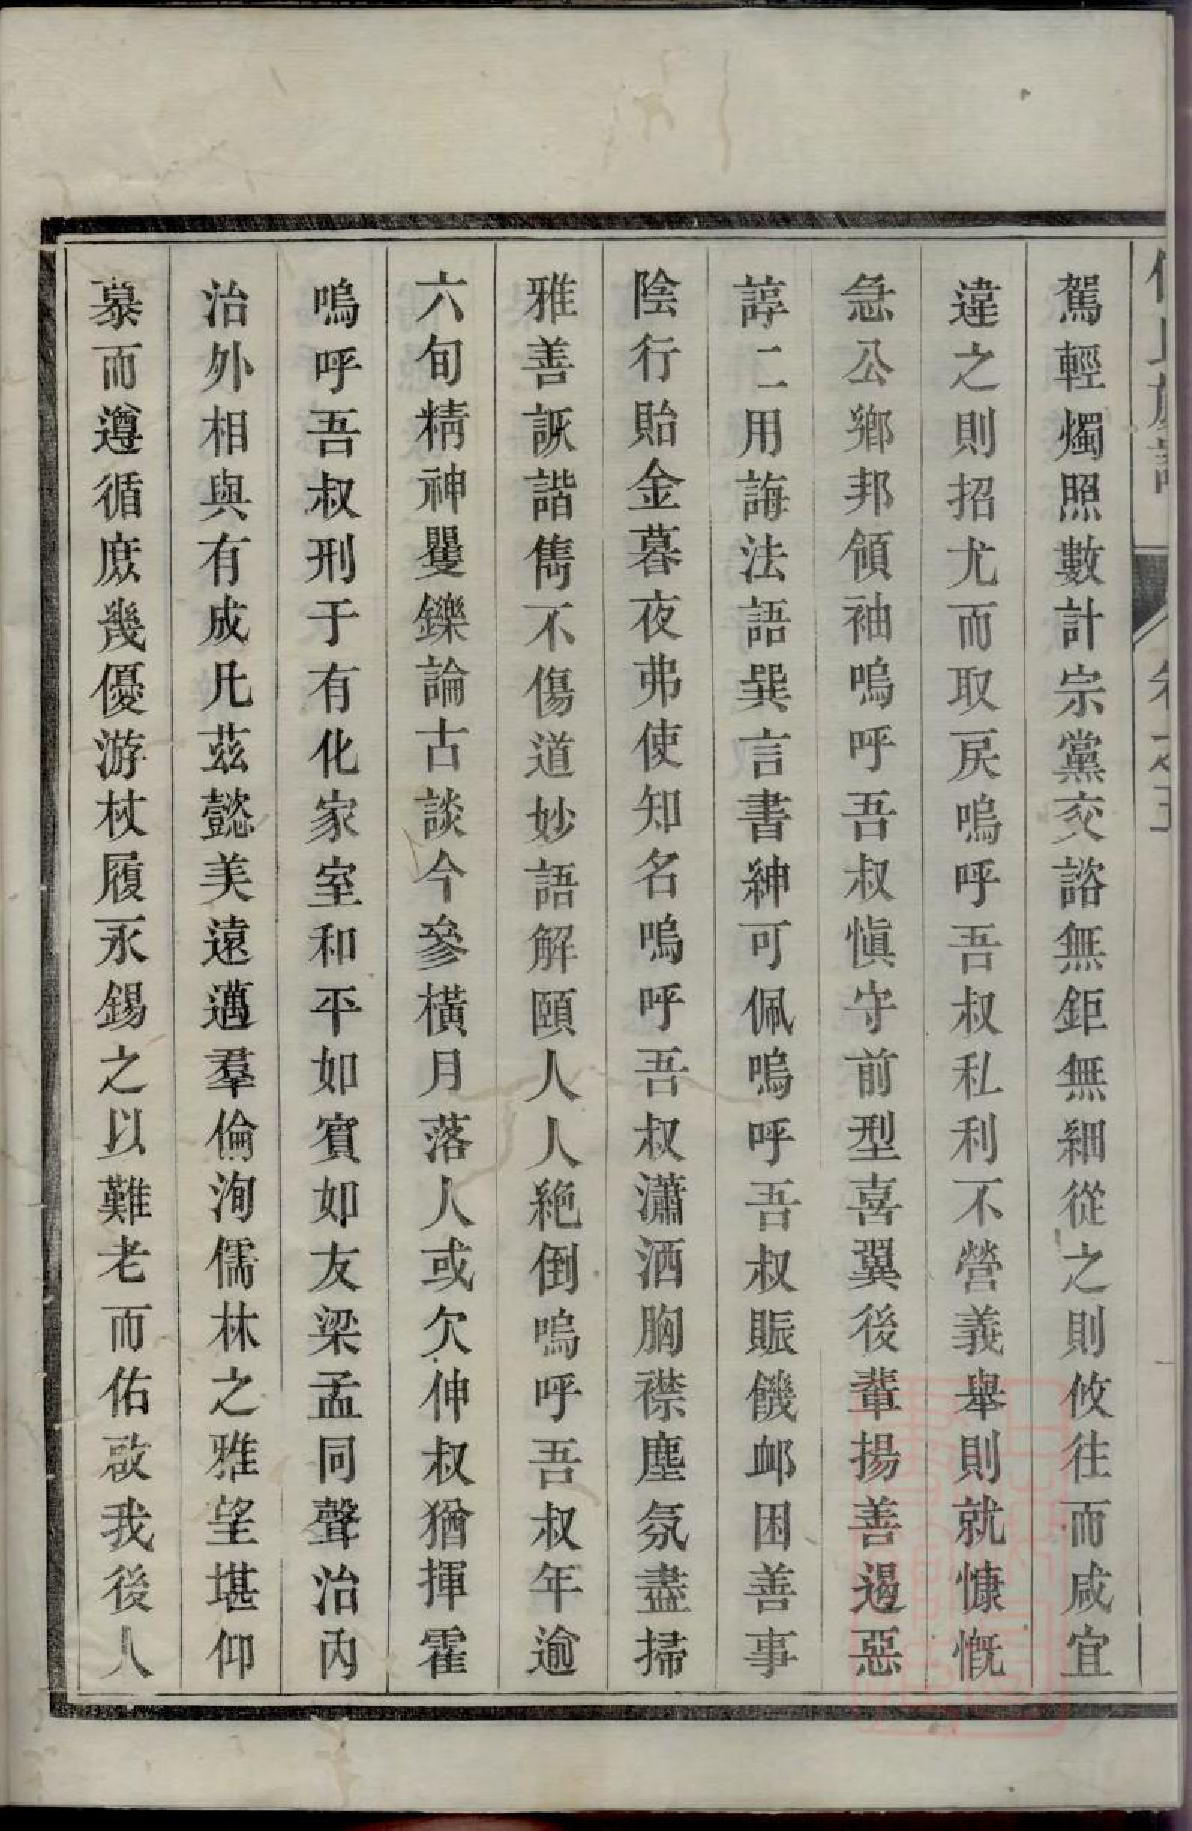 駕輕燭照數計宗黨交諮無鉅無細從之則攸往而咸宜
違之則招尤而取戾嗚呼吾叔私利不營義舉則就慷慨
急公鄉邦領袖嗚呼吾叔愼守前型喜翼後輩揚善遏惡
諄二用誨法語巽言書紳可佩嗚呼吾叔賑饑邮困善事
陰行貽金暮夜弗使知名嗚呼吾叔瀟洒胸襟塵氛盡掃
雅善詼諧雋不傷道妙語解頤人人絕倒嗚呼吾叔年逾
六旬精神矍鑠論古談今參橫月落人或欠伸叔猶揮霍
嗚呼吾叔刑于有化家室和平如賓如友梁孟同聲治內
治外相與有成凡茲懿美遠邁羣倫洵儒林之雅望堪仰
慕而遵循庶幾優游杖履永錫之以難老而佑啟我後人